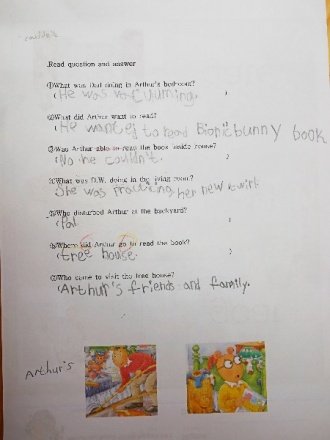 Read question and answer
①What was Dad doing in Arthur's bedroom?
(He was vacuuming. )
②What did Arthur want to read?
(He wanted to read Bionicbunny book
③Was Arthur able to read the book inside house?
(No he couldn't. )
④What was D.W. doing in the living room?
She was practicing her new twirl
⑤Who disturbed Arthur at the backyard?
(Pal.
⑥Where did Arthur go to read the book?
(tree house. )
⑦Who came to visit the tree house?
(Arthur's friends and family.
Arthur's